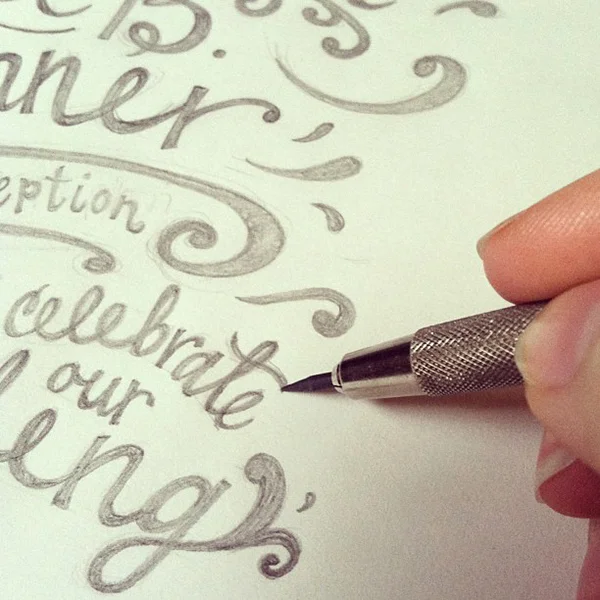 B.
aner
eption
celebrate
our
eng